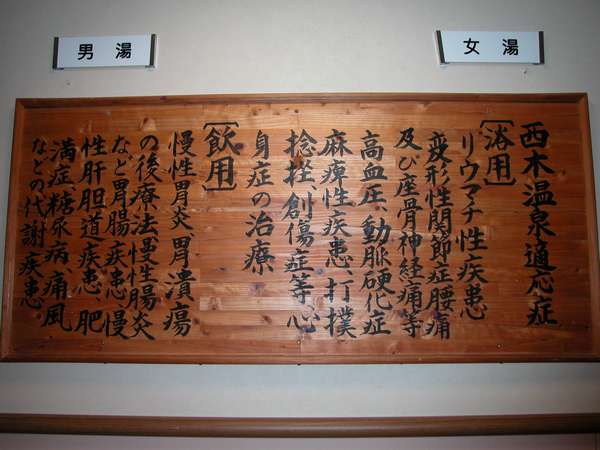 男湯
女湯
西木温泉適応症
〔浴用〕
リウマチ性疾患
変形性関節症腰痛
及び座骨神経痛等
高血圧、動脈硬化症
麻痺性疾患、打撲
捻挫、創傷症等心
身症の治療
〔飲用〕
慢性胃炎 胃潰瘍
の後療法慢性腸炎
など胃腸疾患慢
性肝胆道疾患、肥
満症、糖尿病、痛風
などの代謝疾患